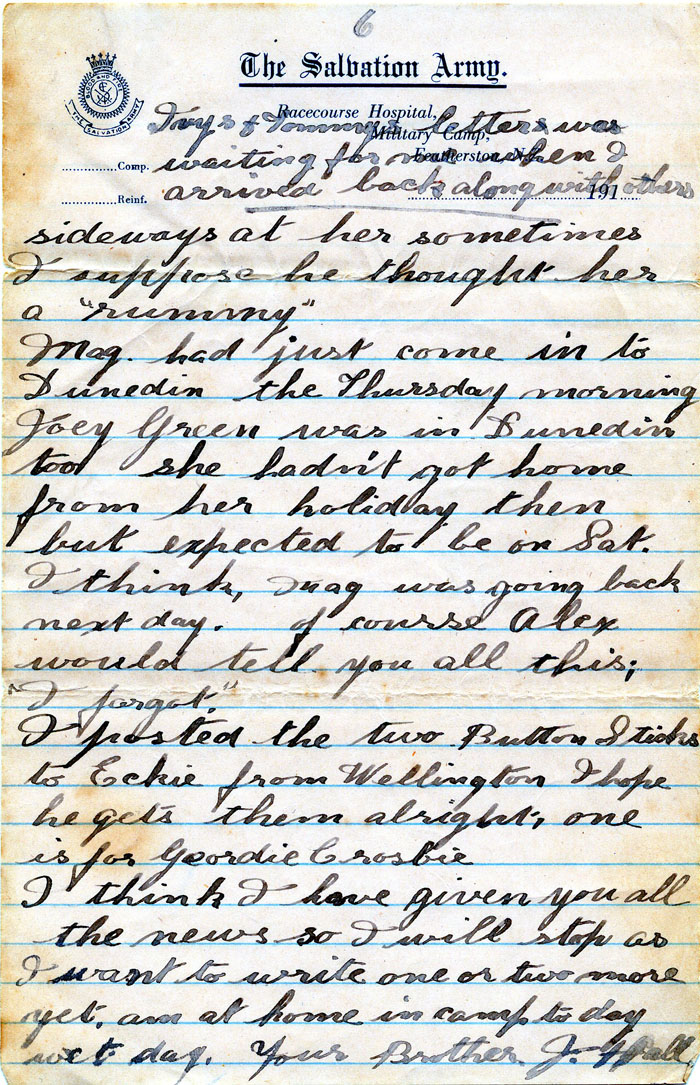 6
The Salvation Army.
BLOOD AND FIRE
THE SALVATION ARMY
Racecourse Hospital,
Military Camp,
Featherston, N.Z.
Comp.
Reinf.
191
Ivys & Tommys letters was
waiting for me when I
arrived back along with others
sideways at her sometimes
I suppose he thought her
a "rummy"
Mag. had just come in to
Dunedin the Thursday morning
Joey Green was in Dunedin
too she hadn't got home
from her holiday then
but expected to be on Sat.
I think, mag was going back
next day. of course Alex
would tell you all this;
"I forgot."
I posted the two Button Sticks
to Eckie from Wellington I hope
he gets them alright, one
is for Geordie Crosbie
I think I have given you all
the news so I will stop as
I want to write one or two more
yet. am at home in camp to day
wet day. Your Brother J.